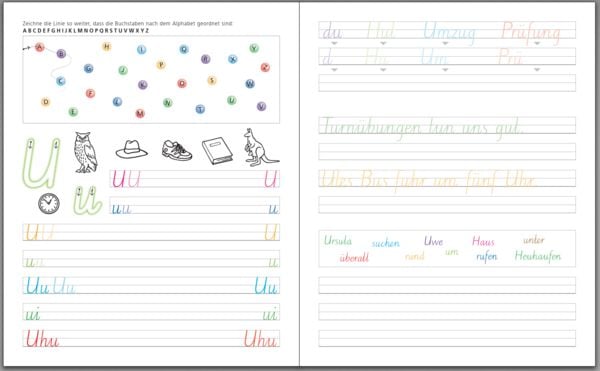 Zeichne die Linie so weiter, dass die Buchstaben nach dem Alphabet geordnet sind:
A B C D E F G H I J K L M N O P Q R S T U V W X Y Z
A B H L Q R X Y
I P Z
C J K O S W
F G N T U V
D E L M
U
u
U U U
u u u
U U U
u u u
Uu Uu Uu
ui ui
Uhu Uhu
du Hut Umzug Prüfung
d Hu Um Prü
Turnübungen tun uns gut.
Ules Bus fuhr um fünf Uhr.
Ursula suchen Uwe Haus unter
überall rund um rufen Heuhaufen